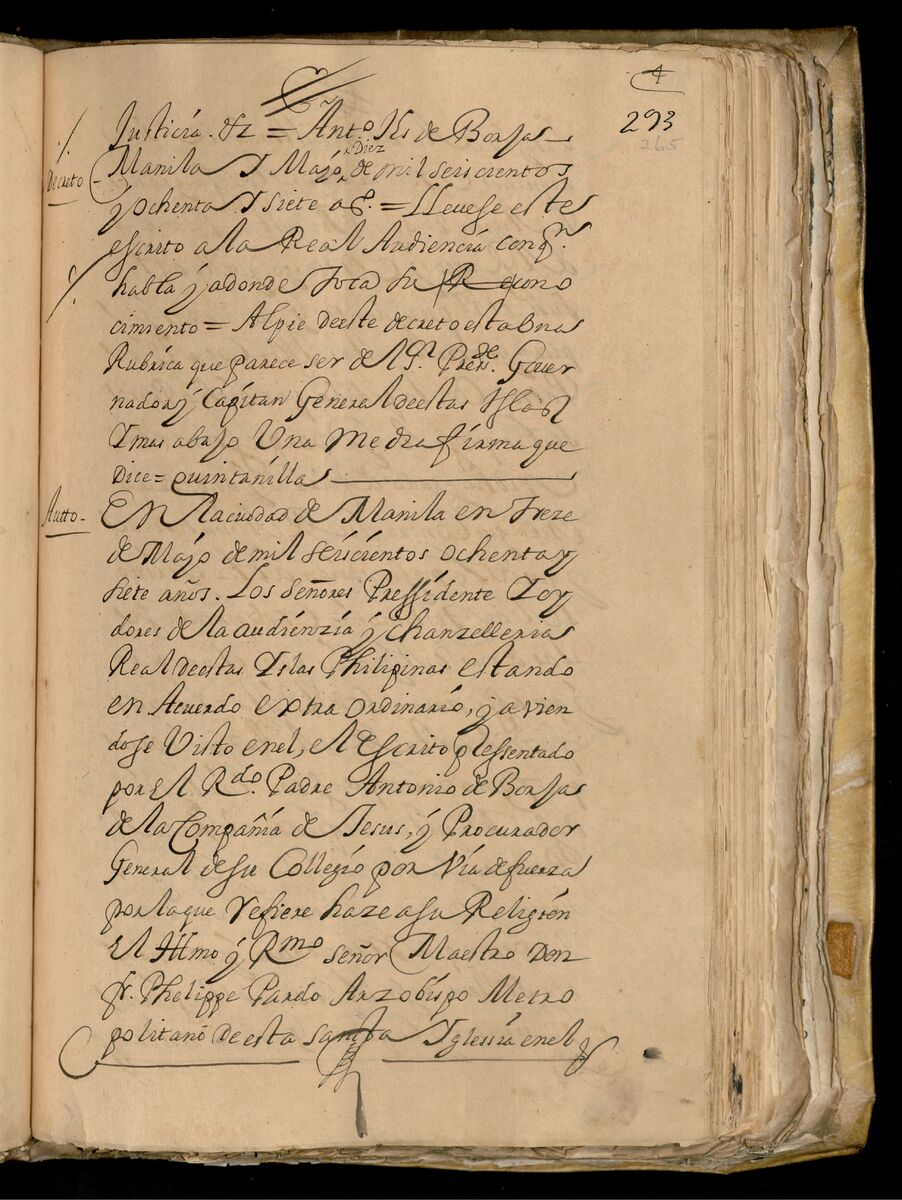 4
293
265
Justicia. &z = Antto. Xs de Borjas
Decreto - Manila Y Mayo Diez de mil seiscientos
y ochenta Y siete as. = LLevese este
escrito a la Real Audiencia conqn.
habla y adonde toca su Recono
cimiento = Alpie deeste decreto esta Una
Rubrica que parece ser del Sr. Presde. Gover
nador y Capitan General deestas Yslas
Y mas abajo Una media firma que
Dice = quintanilla
Autto - En la ciudad de Manila en treze
de Mayo de mil seiscientos ochenta y
siete años. Los señores Pressidente Y oy
dores de la audienzia y chanzelleria
Real deestas Yslas Philipinas estando
en Acuerdo extra ordinario, y avien
dose Visto enel, el Escrito pressentado
por El Rdo. Padre Antonio de Borjas
de la Compañia de Jesus, y Procurador
General de su Collegio por Via de fuerza
por la que refiere haze a su Religion
El Illmo y Rmo señor Maestro Don
fr. Phelippe Pardo Arzobispo Metro
politano de esta santa Yglessia enel